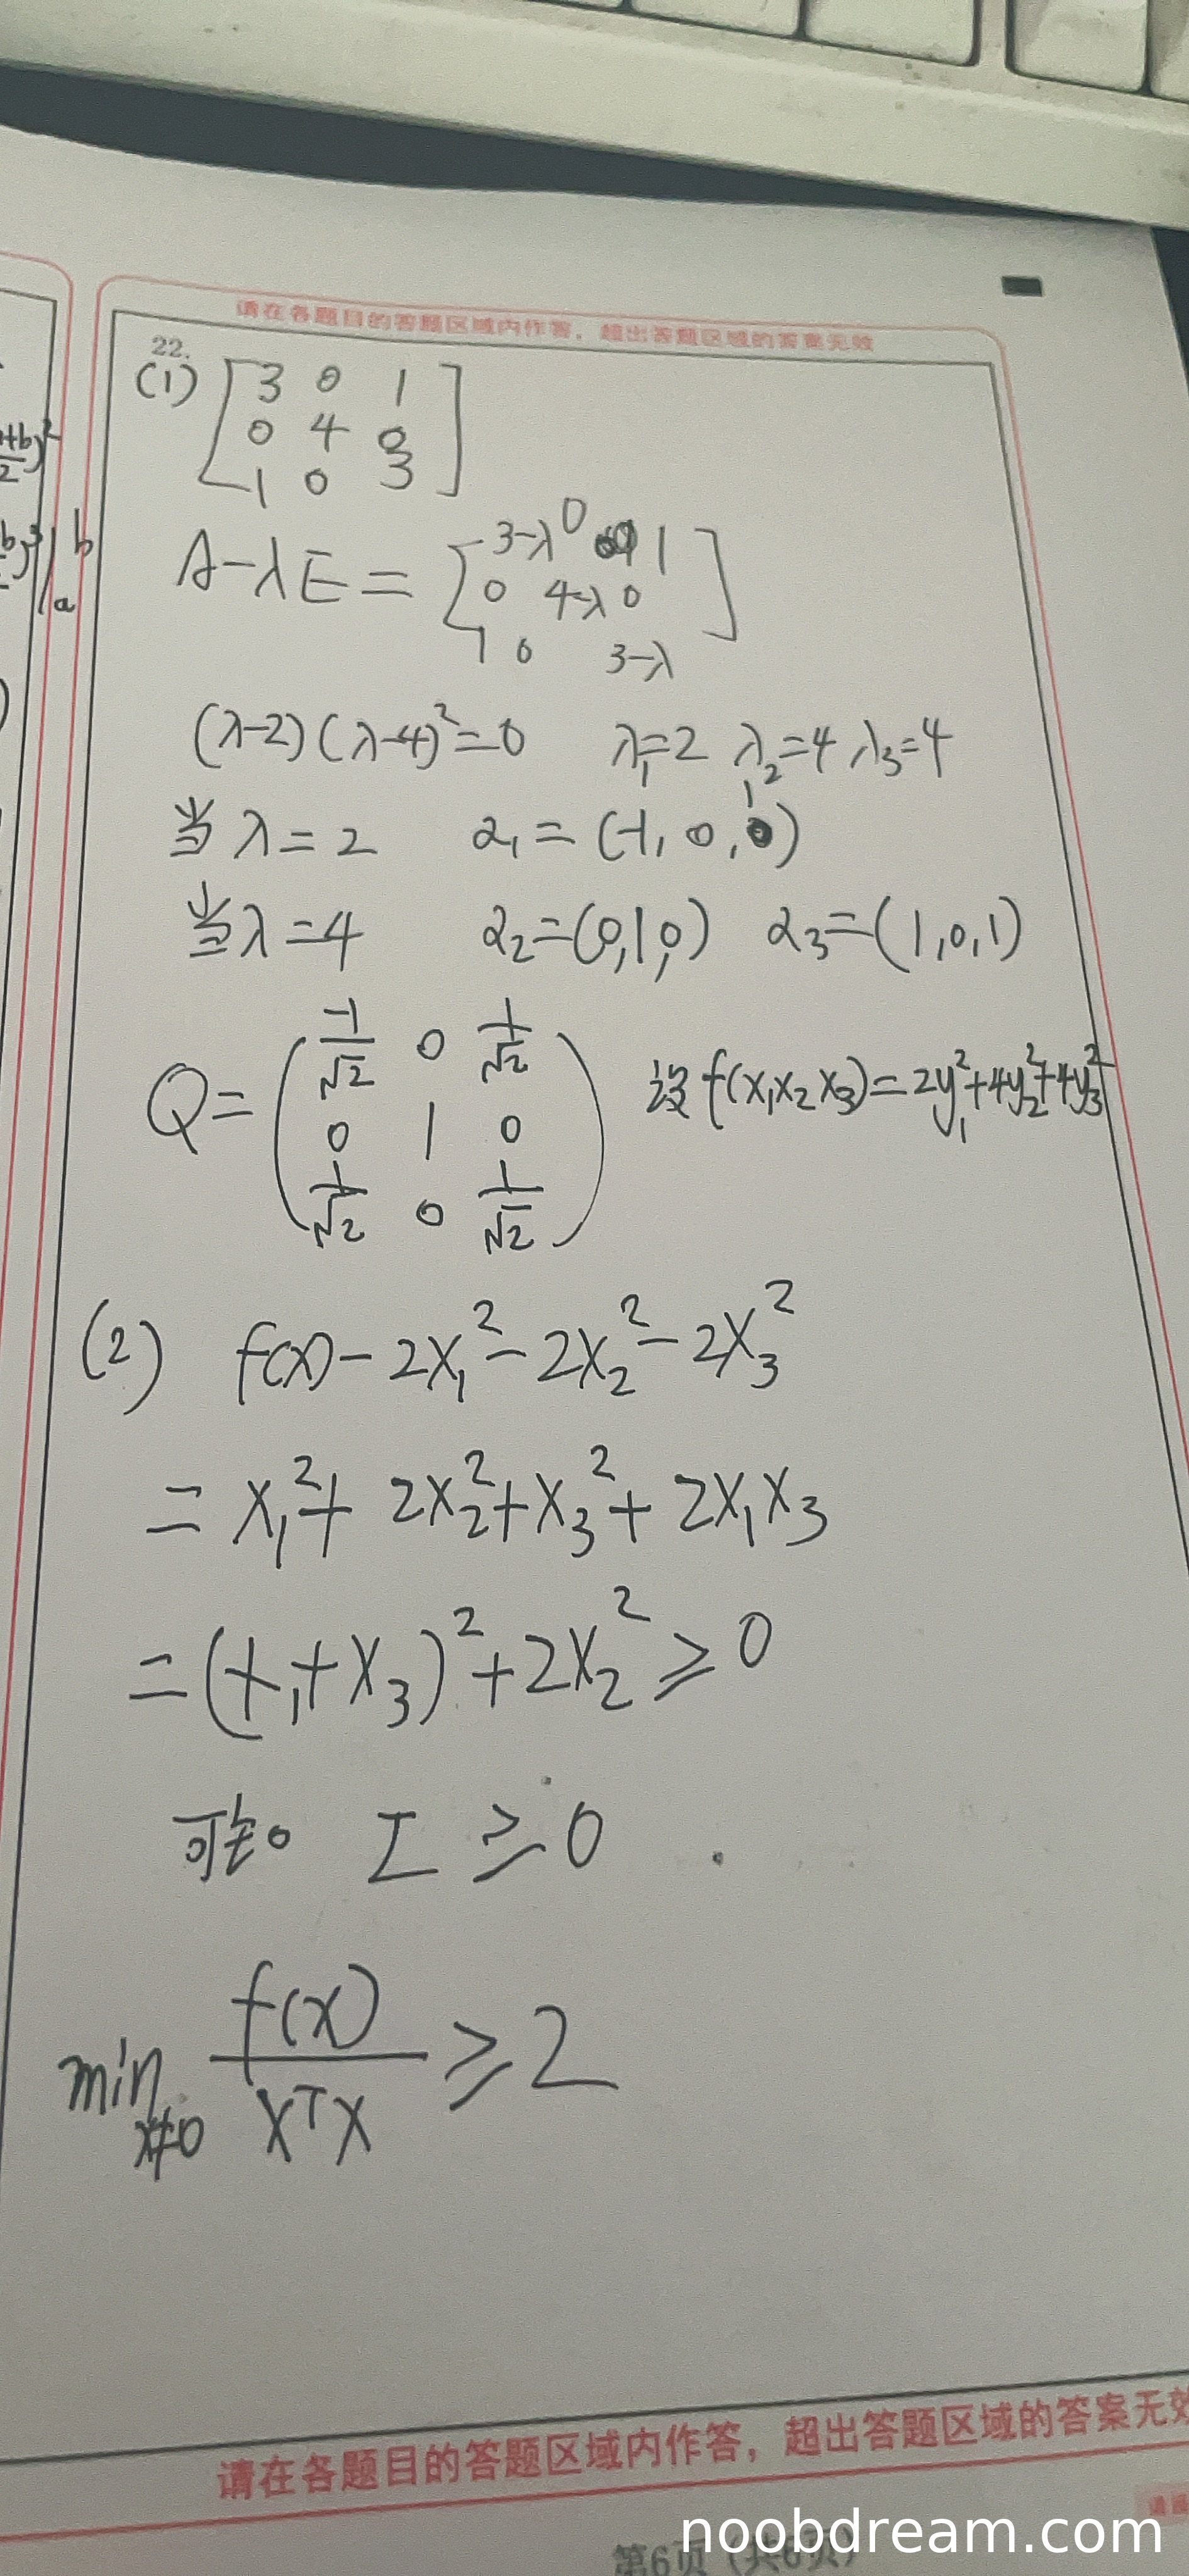 请在各题目的答题区域内作答，超出答题区域的答案无效
22.
(1) [3 0 1
0 4 0
1 0 3]
A-λE = [3-λ 0 1
0 4-λ 0
1 0 3-λ]
(λ-2)(λ-4)²=0 λ₁=2 λ₂=4 λ₃=4
当λ=2 α₁=(-1,0,1)
当λ=4 α₂=(0,1,0) α₃=(1,0,1)
Q=(-1/√2 0 1/√2
0 1 0
1/√2 0 1/√2) 设f(x₁x₂x₃)=2y₁²+4y₂²+4y₃²
(2) f(x)-2x₁²-2x₂²-2x₃²
=x₁²+2x₂²+x₃²+2x₁x₃
=(x₁+x₃)²+2x₂²≥0
可知 I≥0
min x≠0 f(x)/xᵀx ≥2
请在各题目的答题区域内作答，超出答题区域的答案无效
第6页（共6页）
noobdream.com
b
a